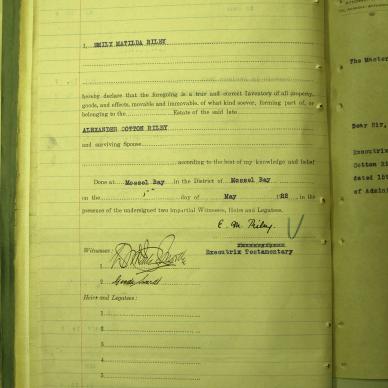 I, EMILY MATILDA RILEY
hereby declare that the foregoing is a true and correct Inventory of all property,
goods, and effects, movable and immovable, of what kind soever, forming part of, or
belonging to the Estate of the said late
ALEXANDER COTTON RILEY
and surviving Spouse
according to the best of my knowledge and belief
Done at Mossel Bay in the District of Mossel Bay
on the day of May 1922, in the
presence of the undersigned two impartial Witnesses, Heirs and Legatees.
E. M. Riley.
Executrix Testamentary
Witnesses:
1.
2.
Heirs and Legatees:
1.
2.
3.
4.
5.
The Master
Dear Sir,
Executrix
Cotton Ri
dated 18t
of Admin